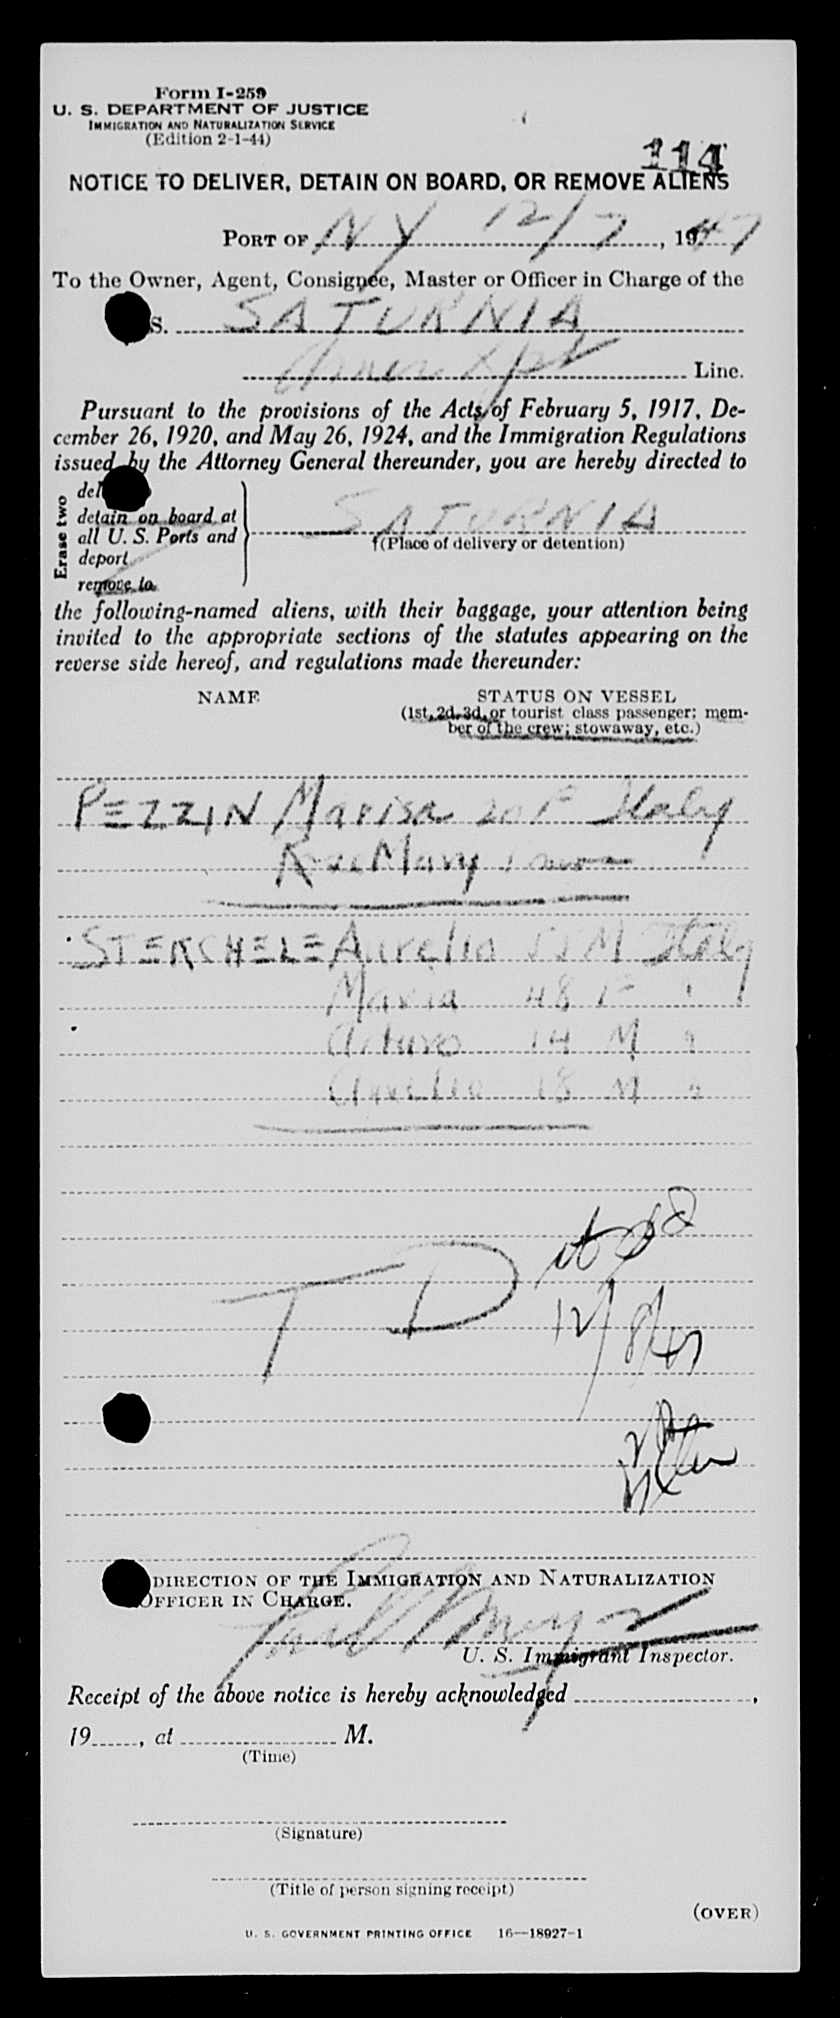 Form I-259
U. S. DEPARTMENT OF JUSTICE
IMMIGRATION AND NATURALIZATION SERVICE
(Edition 2-1-44)
114
NOTICE TO DELIVER, DETAIN ON BOARD, OR REMOVE ALIENS
PORT OF NY 12/7, 1947
To the Owner, Agent, Consignee, Master or Officer in Charge of the
S. SATURNIA
Line.
Pursuant to the provisions of the Acts of February 5, 1917, De-
cember 26, 1920, and May 26, 1924, and the Immigration Regulations
issued by the Attorney General thereunder, you are hereby directed to
Erase two
del
detain on board at
all U. S. Ports and
deport
remove to
SATURNIA
(Place of delivery or detention)
the following-named aliens, with their baggage, your attention being
invited to the appropriate sections of the statutes appearing on the
reverse side hereof, and regulations made thereunder:
NAME STATUS ON VESSEL
(1st, 2d, 3d, or tourist class passenger; mem-
ber of the crew; stowaway, etc.)
PEZZIN Marisa 20 F Italy
Mary
STERCHELE Aurelio 55 M Italy
Maria 48 F "
Arturo 14 M "
Aurelio 18 M "
T D
12/8/47
DIRECTION OF THE IMMIGRATION AND NATURALIZATION
OFFICER IN CHARGE.
U. S. Immigrant Inspector.
Receipt of the above notice is hereby acknowledged ,
19 , at M.
(Time)
(Signature)
(Title of person signing receipt)
(OVER)
U. S. GOVERNMENT PRINTING OFFICE 16—18927-1